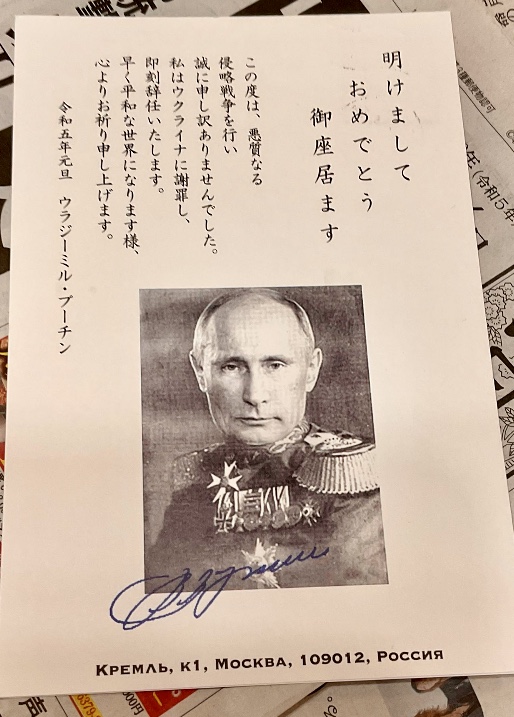 明けまして
おめでとう
御座居ます
この度は、悪質なる
侵略戦争を行い
誠に申し訳ありませんでした。
私はウクライナに謝罪し、
即刻辞任いたします。
早く平和な世界になります様、
心よりお祈り申し上げます。
令和五年元旦 ウラジーミル・プーチン
Кремль, к1, Москва, 109012, Россия